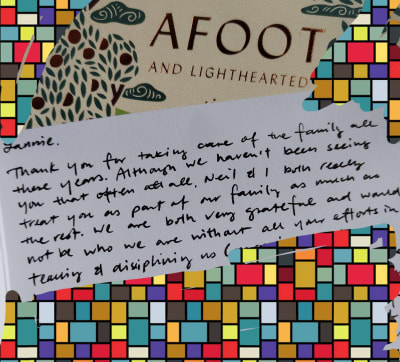 AFOOT
AND LIGHTHEARTED
Jannie.
Thank you for taking care of the family all
these years. Although we haven't been seeing
you that often at all, Neil & I both really
treat you as part of our family as much as
the rest. We are both very grateful and would
not be who we are without all your efforts in
teasing & disiplining us (